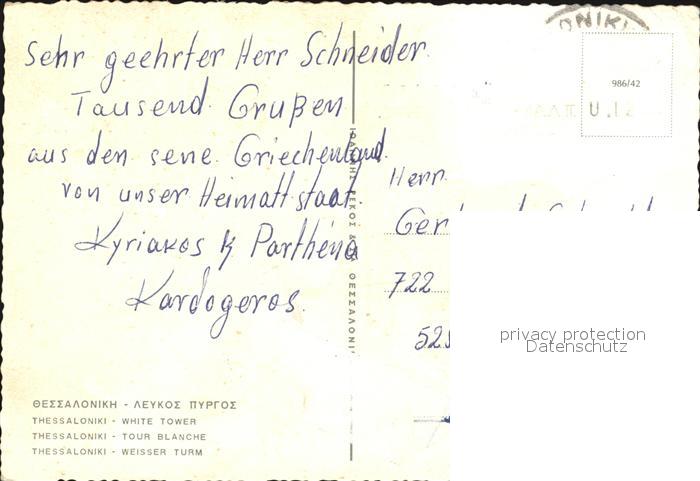 Sehr geehrter Herr Schneider.
Tausend Grußen
aus den sene Griechenland
von unser Heimattstaat.
Kyriakos k Parthena
Kardogeros.
ΘΕΣΣΑΛΟΝΙΚΗ - ΛΕΥΚΟΣ ΠΥΡΓΟΣ
THESSALONIKI - WHITE TOWER
THESSALONIKI - TOUR BLANCHE
THESSALONIKI - WEISSER TURM
ΘΕΣΣΑΛΟΝΙ
ONIKI
986/42
Herr
Ger
722
52
privacy protection
Datenschutz